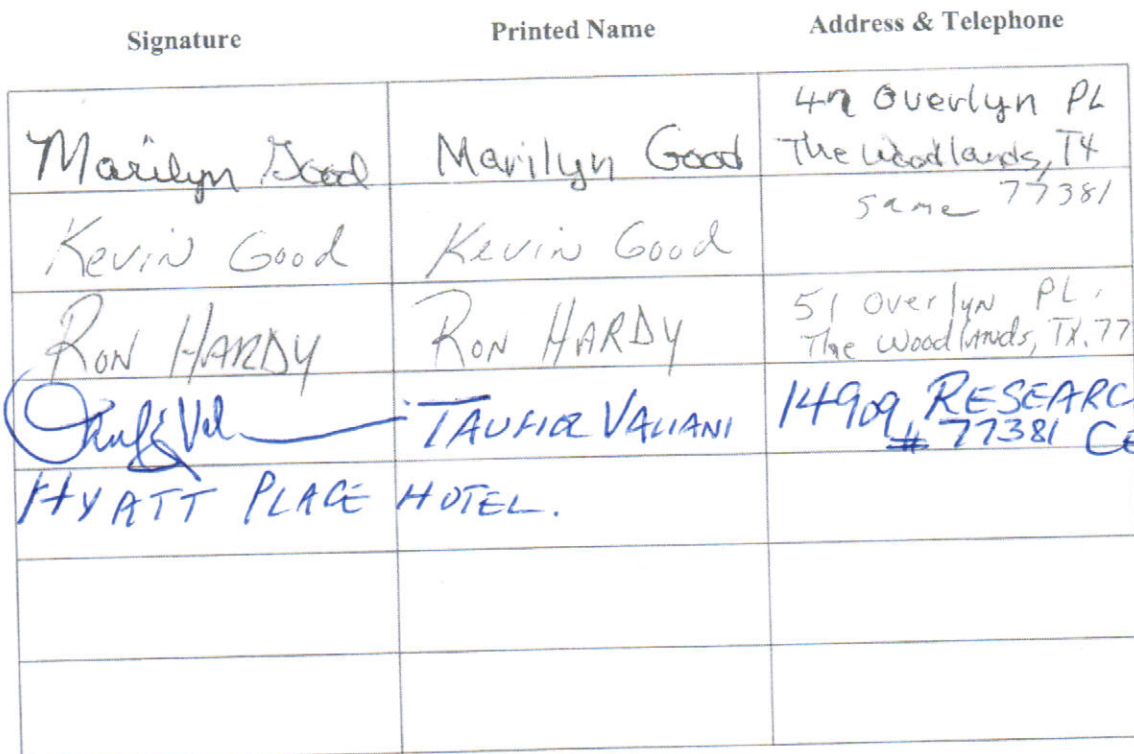 Signature Printed Name Address & Telephone
Marilyn Good Marilyn Good Overlyn PL
The Woodlands, TX
77381
Kevin Good Kevin Good same
Ron HARDY Ron HARDY 51 Overlyn PL.
The Woodlands, TX. 77
TAUFIQ VALIANI 14909 RESEARC
# 77381 CE
HYATT PLACE HOTEL.